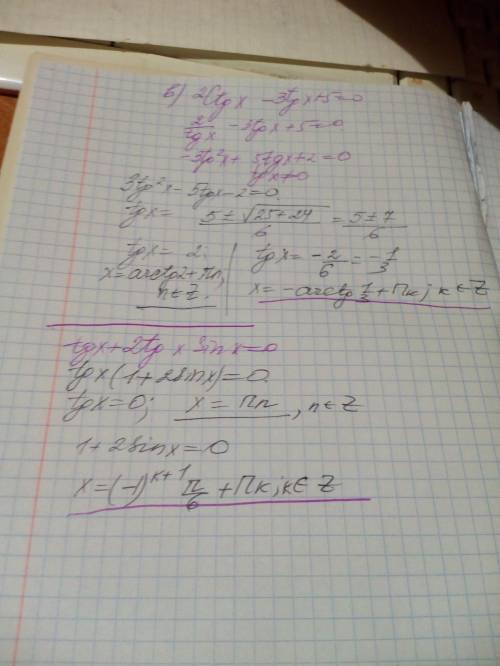 в) 2ctgx - 3tgx + 5 = 0
2/tgx - 3tgx + 5 = 0
-3tg²x + 5tgx + 2 = 0
tgx ≠ 0
3tg²x - 5tgx - 2 = 0.
tgx = (5 ± √(25 + 24))/6 = (5 ± 7)/6
tgx = 2.
x = arctg2 + πn,
n ∈ Z.
tgx = -2/6 = -1/3
x = -arctg 1/3 + πk; k ∈ Z
tgx + 2tgx sinx = 0
tgx(1 + 2sinx) = 0.
tgx = 0; x = πn, n ∈ Z
1 + 2sinx = 0
x = (-1)^{k+1} π/6 + πk; k ∈ Z